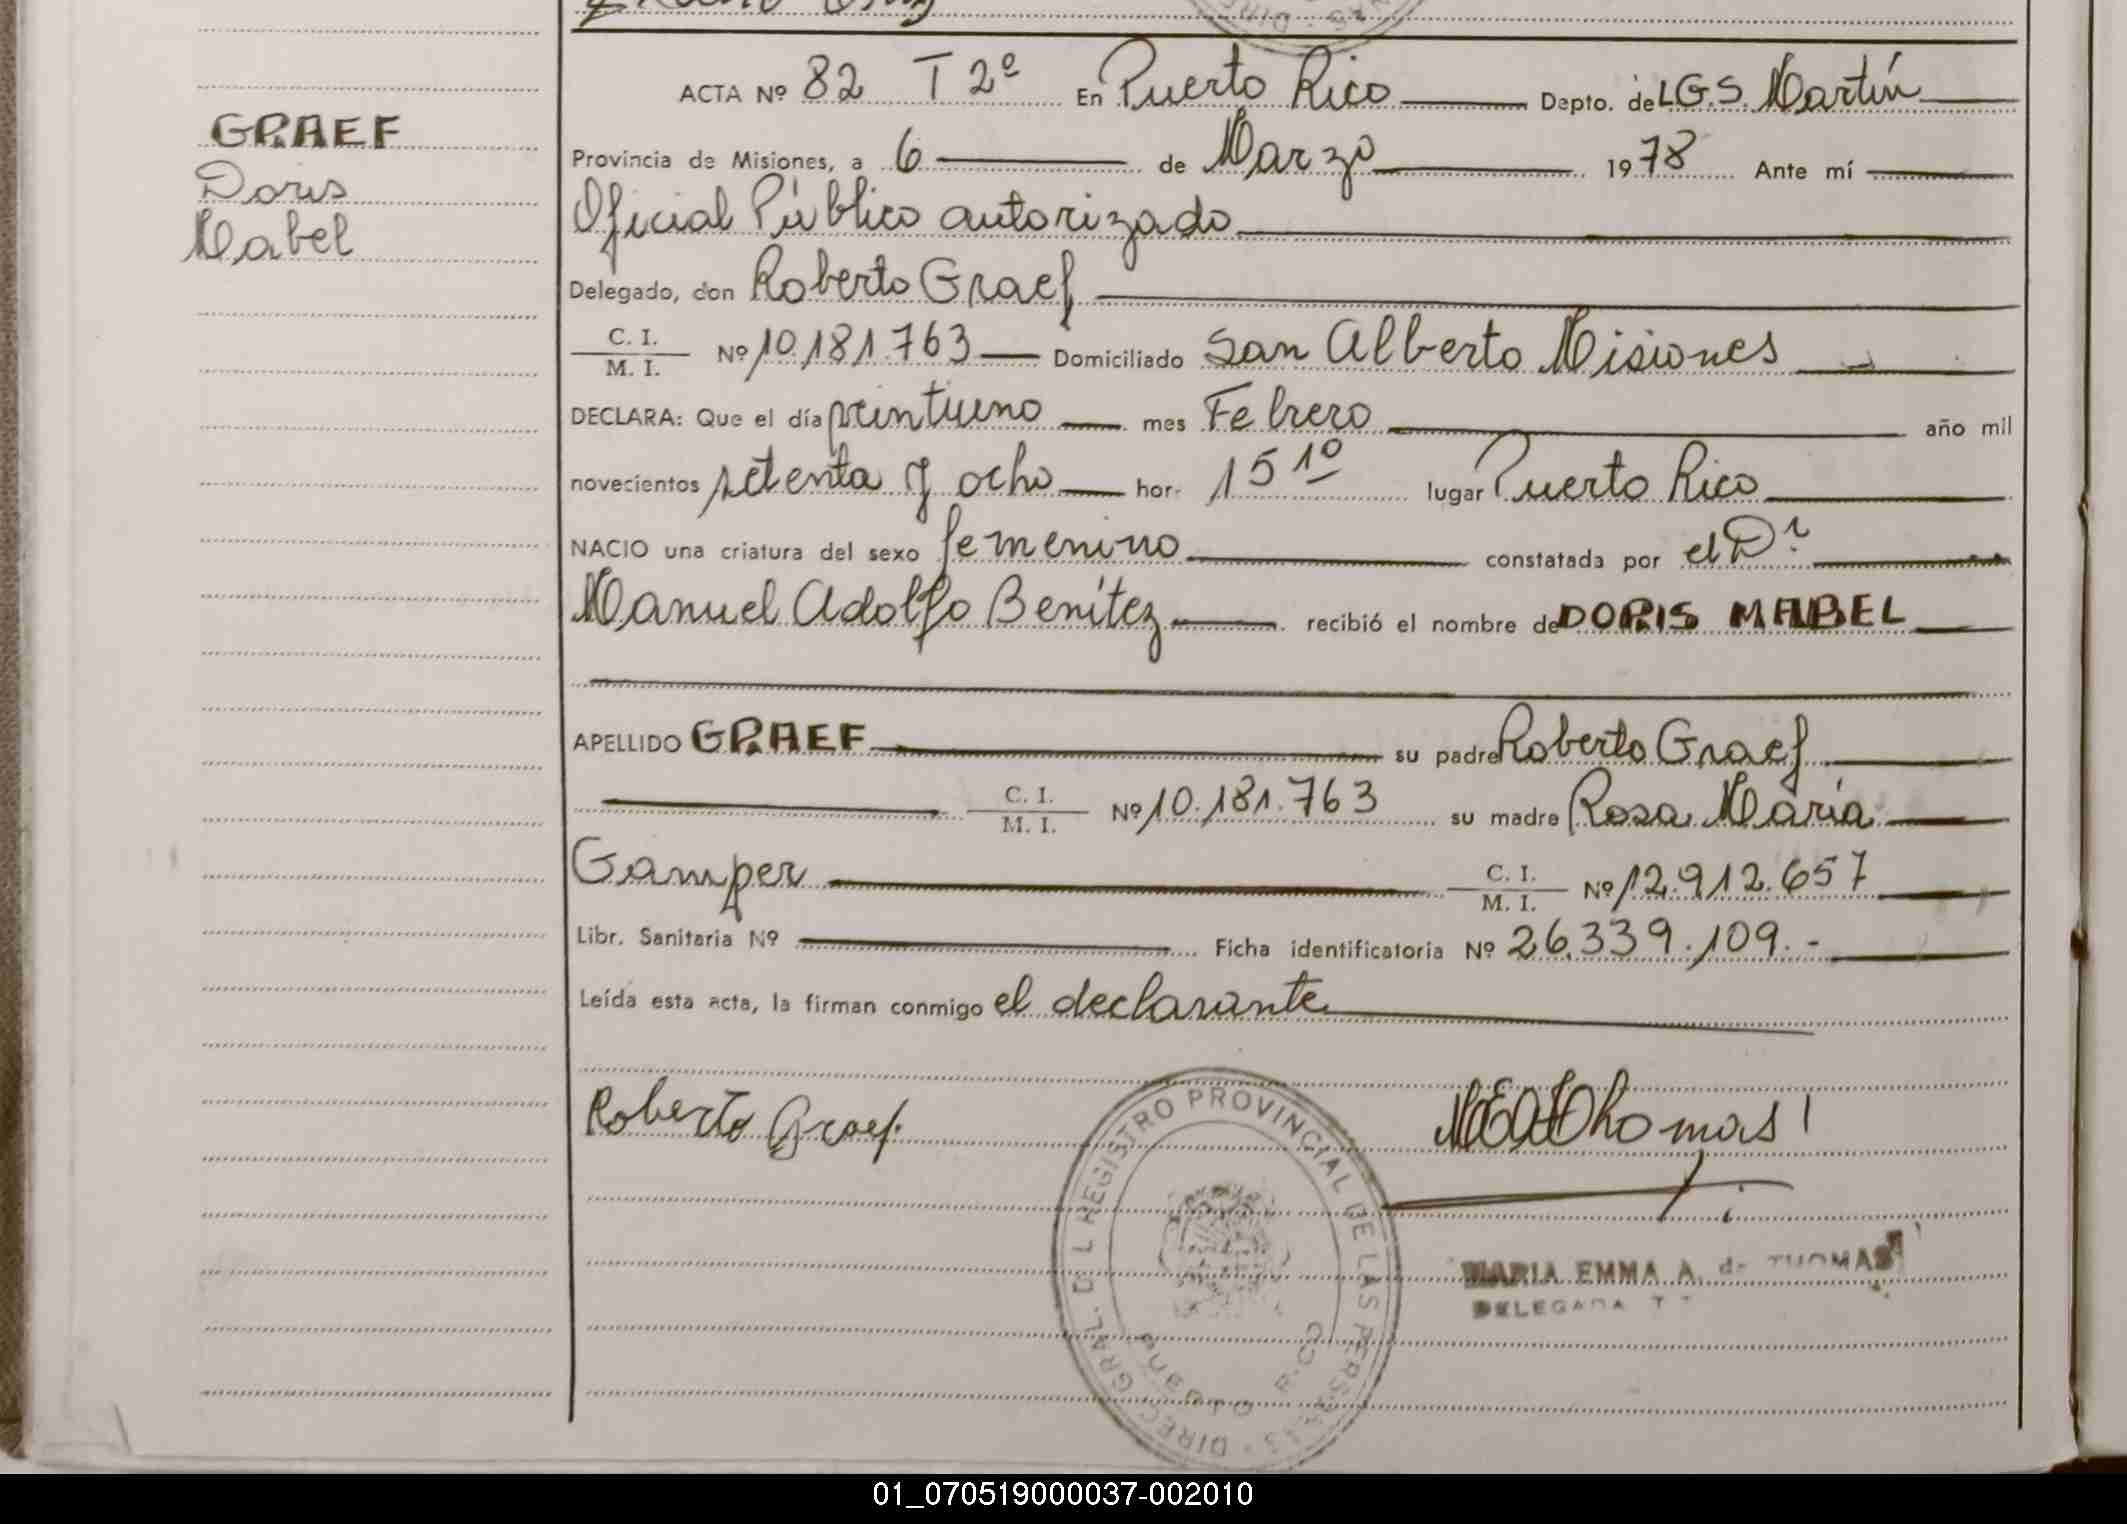 ACTA Nº 82 T 2º En Puerto Rico Depto. de L.G.S. Martín
GRAEF
Doris
Mabel
Provincia de Misiones, a 6 de Marzo 1978 Ante mí
Oficial Público autorizado
Delegado, don Roberto Graef
C. I.
M. I. Nº 10.181.763 Domiciliado San Alberto Misiones
DECLARA: Que el día veintiuno mes Febrero año mil
novecientos setenta y ocho hor. 15 10 lugar Puerto Rico
NACIO una criatura del sexo femenino constatada por el Dr
Manuel Adolfo Benítez recibió el nombre de DORIS MABEL
APELLIDO GRAEF su padre Roberto Graef
C. I.
M. I. Nº 10.181.763 su madre Rosa María
Gamper C. I.
M. I. Nº 12.912.657
Libr. Sanitaria Nº Ficha identificatoria Nº 26.339.109.-
Leída esta acta, la firman conmigo el declarante
Roberto Graef.
Thomas
DIREC. GRAL. DEL REGISTRO PROVINCIAL DE LAS PERSONAS
PUERTO RICO
MARIA EMMA A. de THOMAS
DELEGADA
01_070519000037-002010